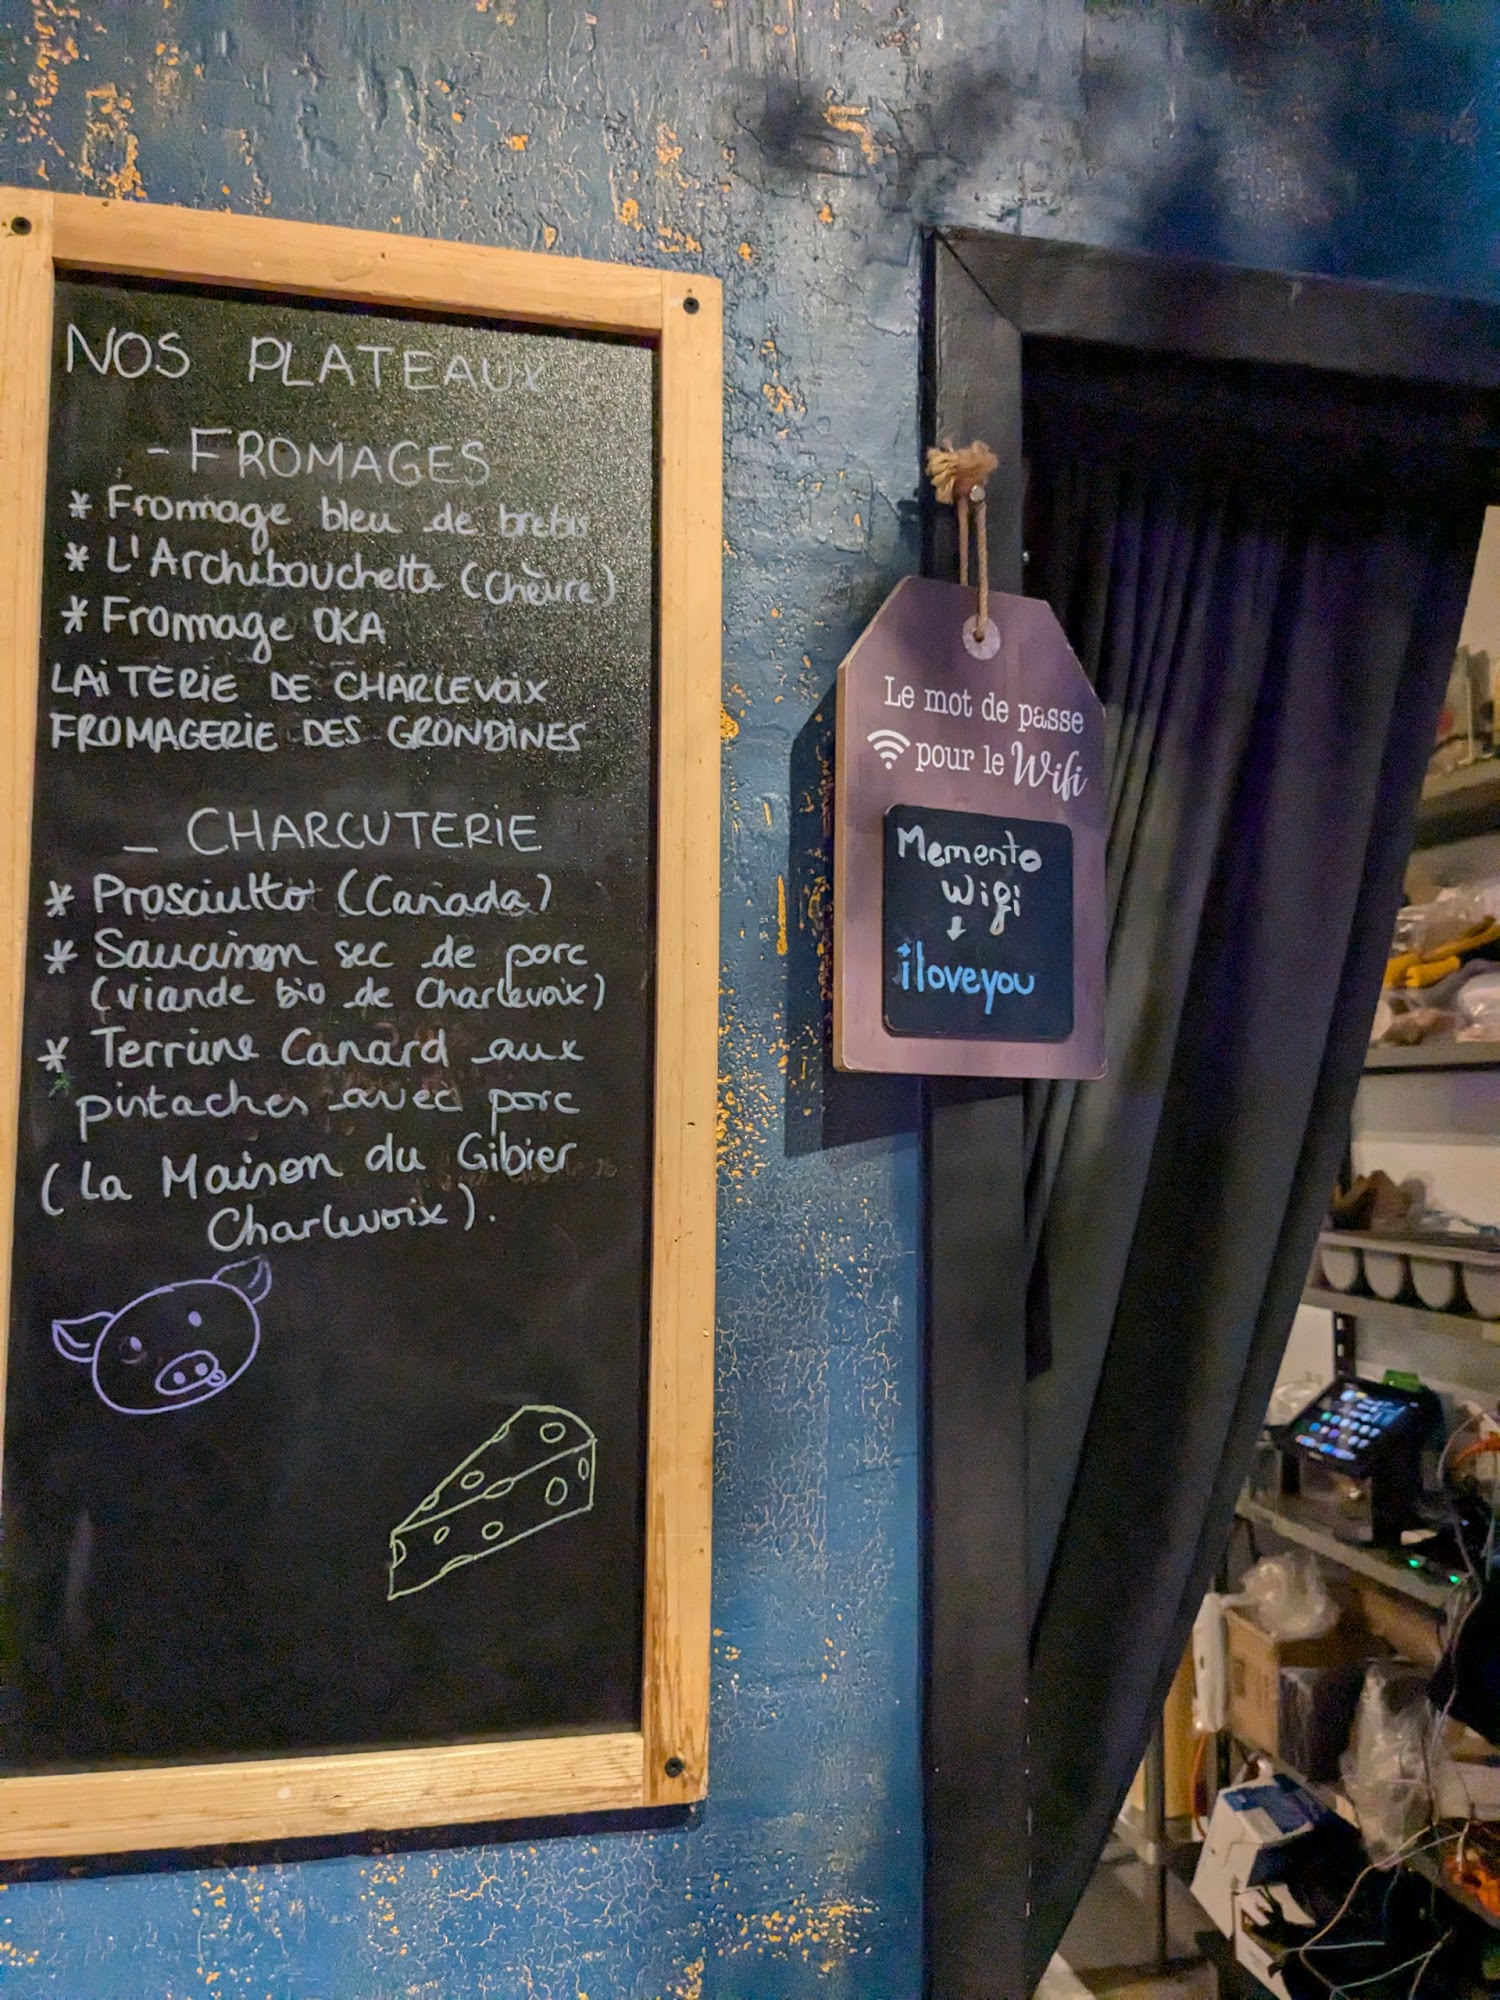 NOS PLATEAUX
- FROMAGES
* Fromage bleu de brebis
* L'Archibouchette (Chèvre)
* Fromage OKA
LAiTERIE DE CHARLEVOIX
FROMAGERIE DES GRONDINES
_ CHARCUTERiE
* Prosciutto (Canada)
* Saucisson sec de porc
(viande bio de Charlevoix)
* Terrine Canard aux
pistaches avec porc
(La Maison du Gibier
Charlevoix).
Le mot de passe
pour le Wifi
Memento
Wifi
iloveyou